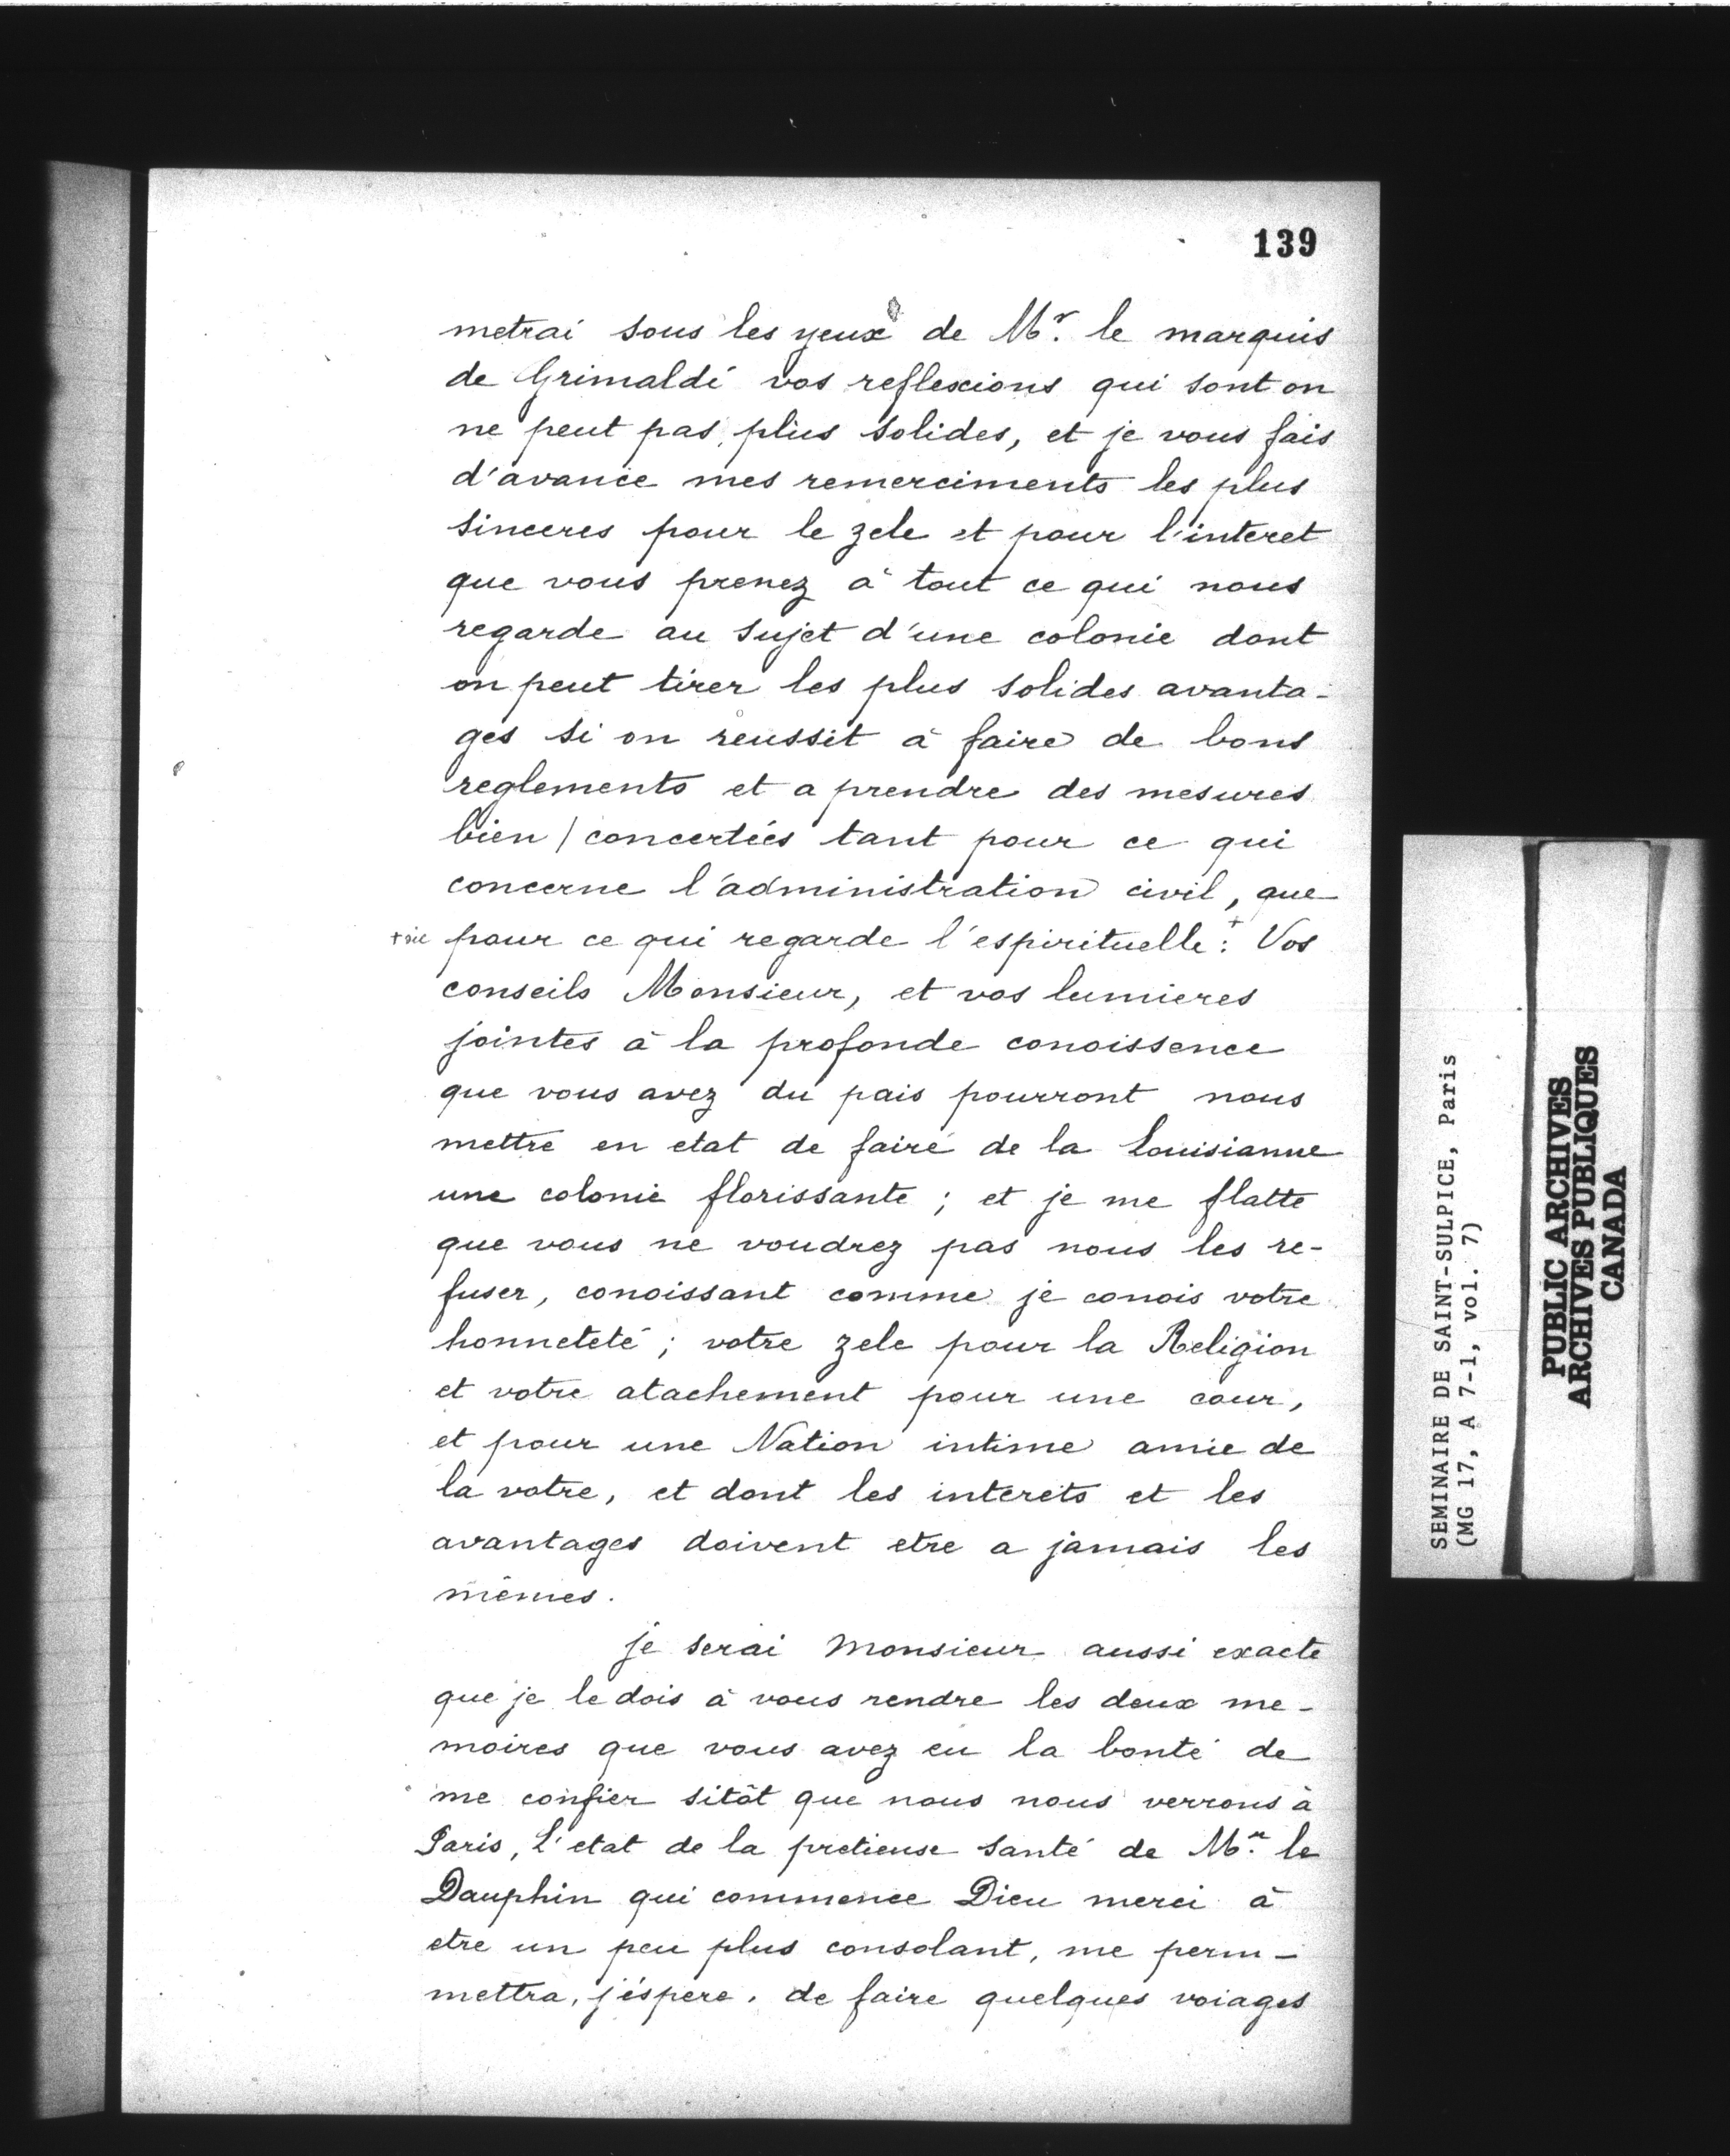 139
metrai sous les yeux de Mr. le marquis
de Grimaldi vos reflexions qui sont on
ne peut pas plus solides, et je vous fais
d'avance mes remerciments les plus
sinceres pour le zele et pour l'interet
que vous prenez à tout ce qui nous
regarde au sujet d'une colonie dont
on peut tirer les plus solides avanta-
ges si on reussit à faire de bons
reglements et a prendre des mesures
bien / concertées tant pour ce qui
concerne l'administration civil, que
+ sic pour ce qui regarde l'espirituelle+: Vos
conseils Monsieur, et vos lumieres
jointes à la profonde conoissence
que vous avez du pais pourront nous
mettre en etat de faire de la Louisianne
une colonie florissante ; et je me flatte
que vous ne voudrez pas nous les re-
fuser, conoissant comme je conois votre
honneteté ; votre zele pour la Religion
et votre atachement pour une cour,
et pour une Nation intime amie de
la votre, et dont les interets et les
avantages doivent etre a jamais les
mêmes.
je serai Monsieur aussi exacte
que je le dois à vous rendre les deux me-
moires que vous avez eu la bonté de
me confier sitôt que nous nous verrons à
Paris, L'etat de la pretieuse santé de Mr. le
Dauphin qui commence Dieu merci à
etre un peu plus consolant, me perm-
mettra, j'éspere, de faire quelques voiages
SEMINAIRE DE SAINT-SULPICE, Paris
(MG 17, A 7-1, vol. 7)
PUBLIC ARCHIVES
ARCHIVES PUBLIQUES
CANADA